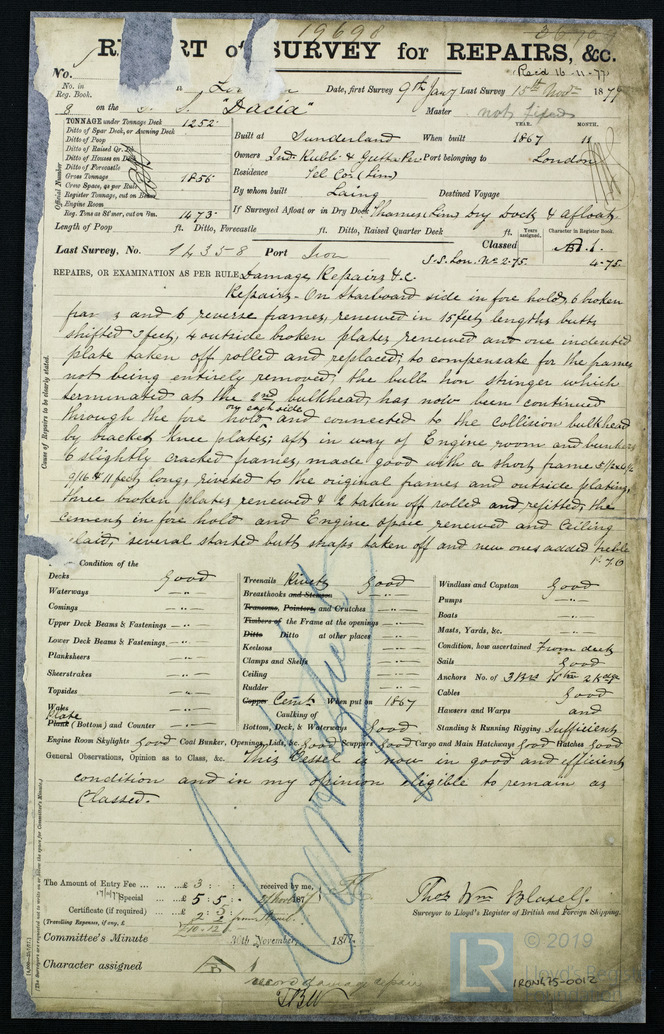 19698
REPORT of SURVEY for REPAIRS, &c.
No.
Rec'd 16-11-77
No. in Reg. Book.
Date, first Survey 9th Jany Last Survey 15th Novr 1877
8 on the S. S. "Dacia" Master not fixed
TONNAGE under Tonnage Deck 1252
Ditto of Spar Deck, or Awning Deck
Ditto of Poop
Ditto of Raised Qr. Dk
Ditto of Houses on Deck
Ditto of Forecastle
Gross Tonnage 1856
Crew Space, as per Rule
Register Tonnage, cut on Beam
Engine Room
Reg. Tons as St'mer, cut on Bm. 1473
Official Number
YEAR. MONTH.
Built at Sunderland When built 1867 11
Owners Ind. Rubb. & Gutta Per. Port belonging to London
Residence Tel Cos (Lim)
By whom built Laing Destined Voyage
If Surveyed Afloat or in Dry Dock Thames (Lim) Dry Dock & afloat
Length of Poop ft. Ditto, Forecastle ft. Ditto, Raised Quarter Deck ft. Years assigned. Character in Register Book.
Last Survey, No. 14358 Port Iron Classed A.1.
S.S. Lon. No 2.75. 4.75.
REPAIRS, OR EXAMINATION AS PER RULE Damage Repairs &c
Repairs - On Starboard side in fore hold, 6 broken
frames and 6 reverse frames, renewed in 15 feet lengths butts
shifted 3 feet, 4 outside broken plates renewed and one indented
plate taken off rolled and replaced; to compensate for the frames
not being entirely removed; the bulb iron stringer which
terminated at the 2nd bulkhead, has now been continued
on each side
through the fore hold and connected to the collision bulkhead
by bracket knee plates; aft in way of Engine room and bunkers
6 slightly cracked frames, made good with a short frame
9/16 11 feet long, riveted to the original frames and outside plating,
three broken plates renewed & 2 taken off rolled and refitted, the
cement in fore hold and Engine space renewed and Ceiling
laid, several started butt straps taken off and new ones added treble
P.T.O
Cause of Repairs to be clearly stated.
Condition of the
Decks Good
Waterways -"-
Comings -"-
Upper Deck Beams & Fastenings -"-
Lower Deck Beams & Fastenings -"-
Planksheers -"-
Sheerstrakes -"-
Topsides -"-
Wales -"-
Plate
Plank (Bottom) and Counter -"-
Treenails Rivets Good
Breasthooks and Stemson -"-
Transoms, Pointers, and Crutches -"-
Timbers of the Frame at the openings -"-
Ditto Ditto at other places -"-
Keelsons -"-
Clamps and Shelfs -"-
Ceiling -"-
Rudder -"-
Copper Cemt. When put on 1867
Caulking of
Bottom, Deck, & Waterways Good
Windlass and Capstan Good
Pumps -"-
Boats -"-
Masts, Yards, &c. -"-
Condition, how ascertained From deck
Sails Good
Anchors No. of 3 Brs 1 Stm 2 Kedge
Cables Good
Hawsers and Warps and
Standing & Running Rigging Sufficient
Engine Room Skylights Good Coal Bunker, Openings, Lids, &c. Good Scuppers Good Cargo and Main Hatchways Good Hatches Good
General Observations, Opinion as to Class, &c. This Vessel is now in good and efficient
condition and in my opinion eligible to remain as
Classed.
(The Surveyors are requested not to write on or below the space for Committee's Minute.)
The Amount of Entry Fee £ 3 : : received by me,
Special £ 5 : 5 :
Certificate (if required) £
(Travelling Expenses, if any, £
Thos Wm Blaxell.
Surveyor to Lloyd's Register of British and Foreign Shipping.
Committee's Minute 30th November 1877.
Character assigned
record damage repairs
© 2019
LR
IRON675-0012